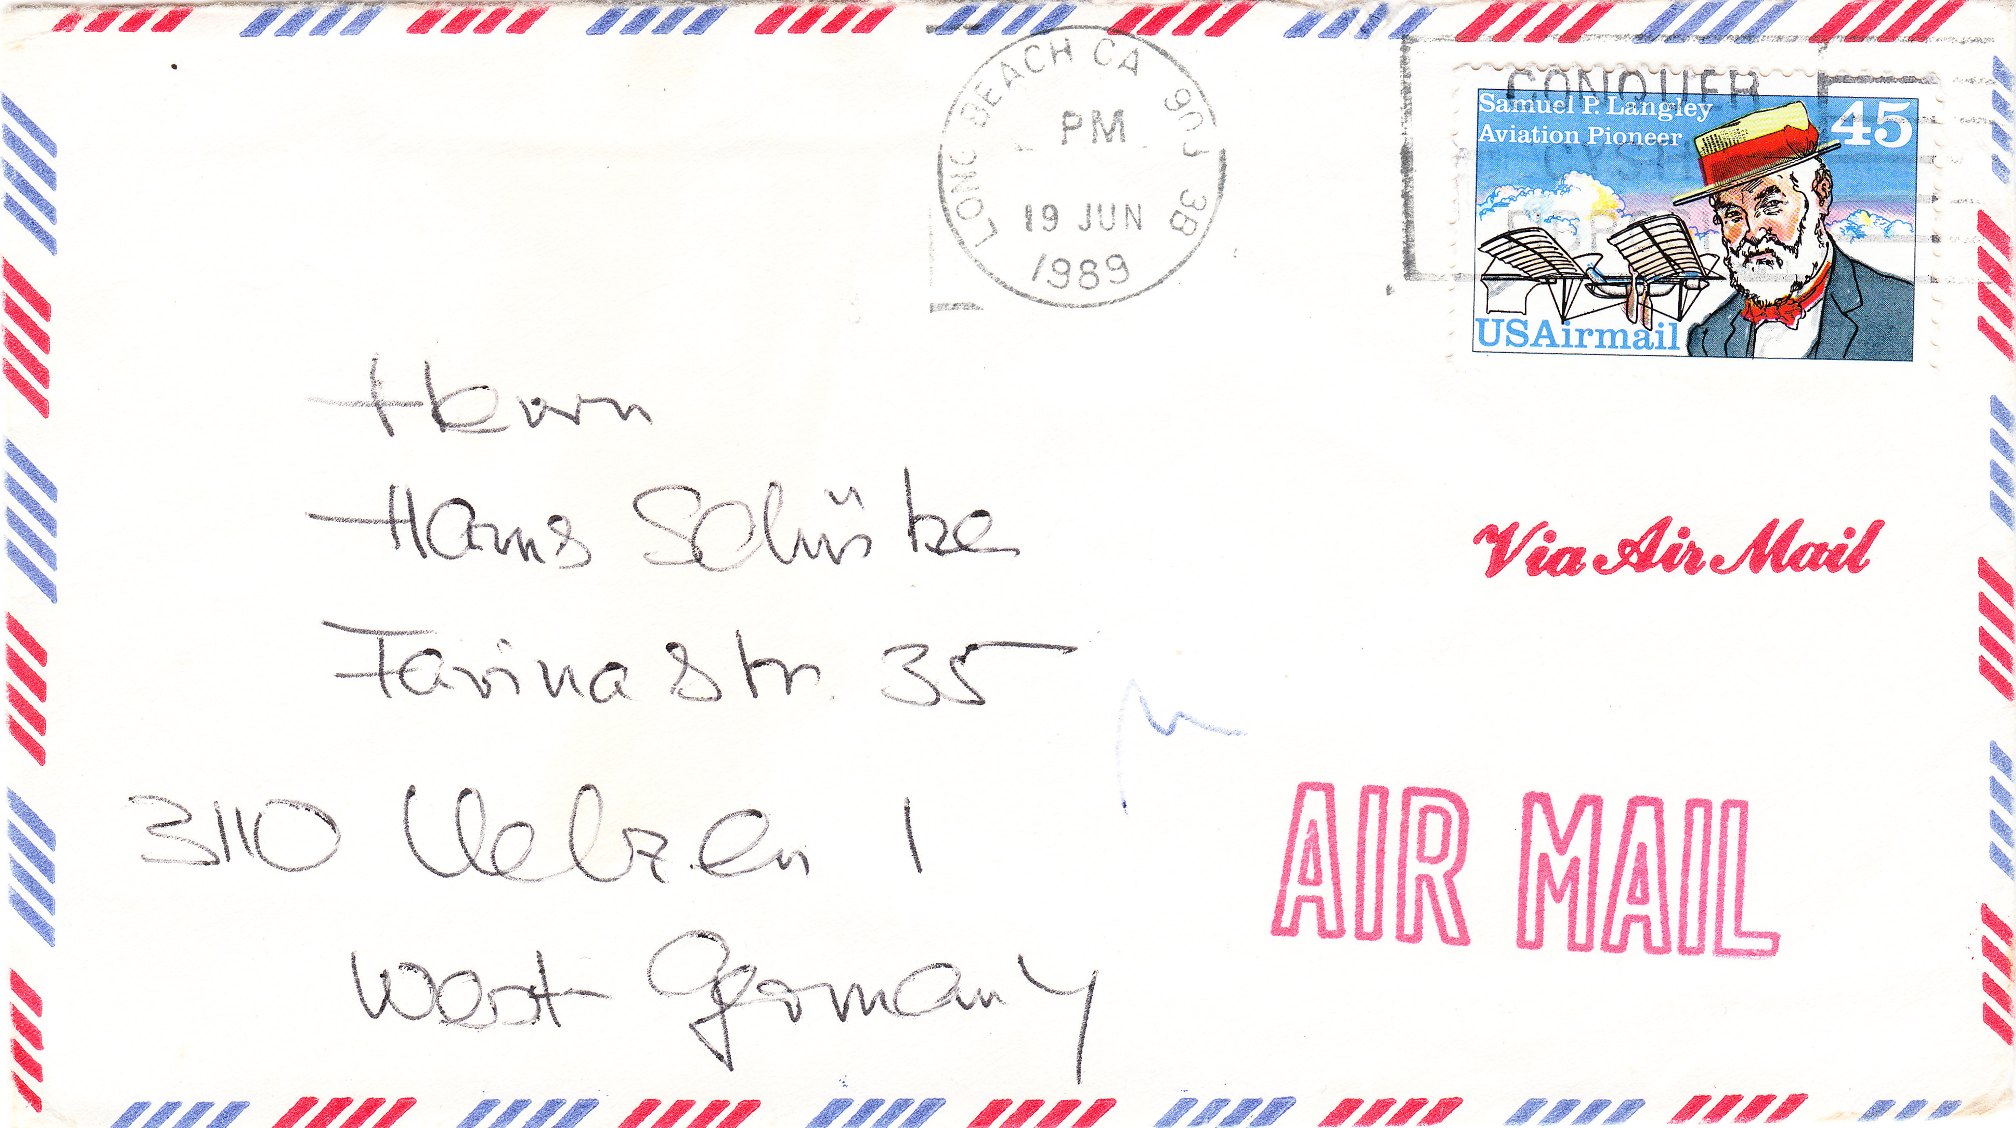 LONG BEACH CA
PM
19 JUN
1989
CONQUER
Samuel P. Langley
Aviation Pioneer
45
USAirmail
Herrn
Hans Schütze
Farinastr. 35
3110 Uelzen 1
West Germany
Via Air Mail
AIR MAIL